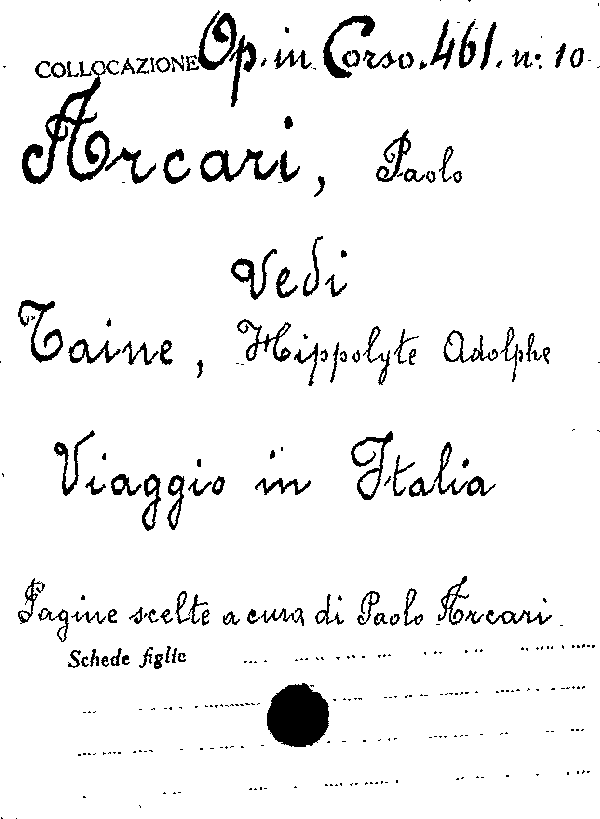 COLLOCAZIONE Op. in Corso. 461. n. 10
Arcari, Paolo
Vedi
Taine, Hippolyte Adolphe
Viaggio in Italia
Pagine scelte a cura di Paolo Arcari
Schede figlie